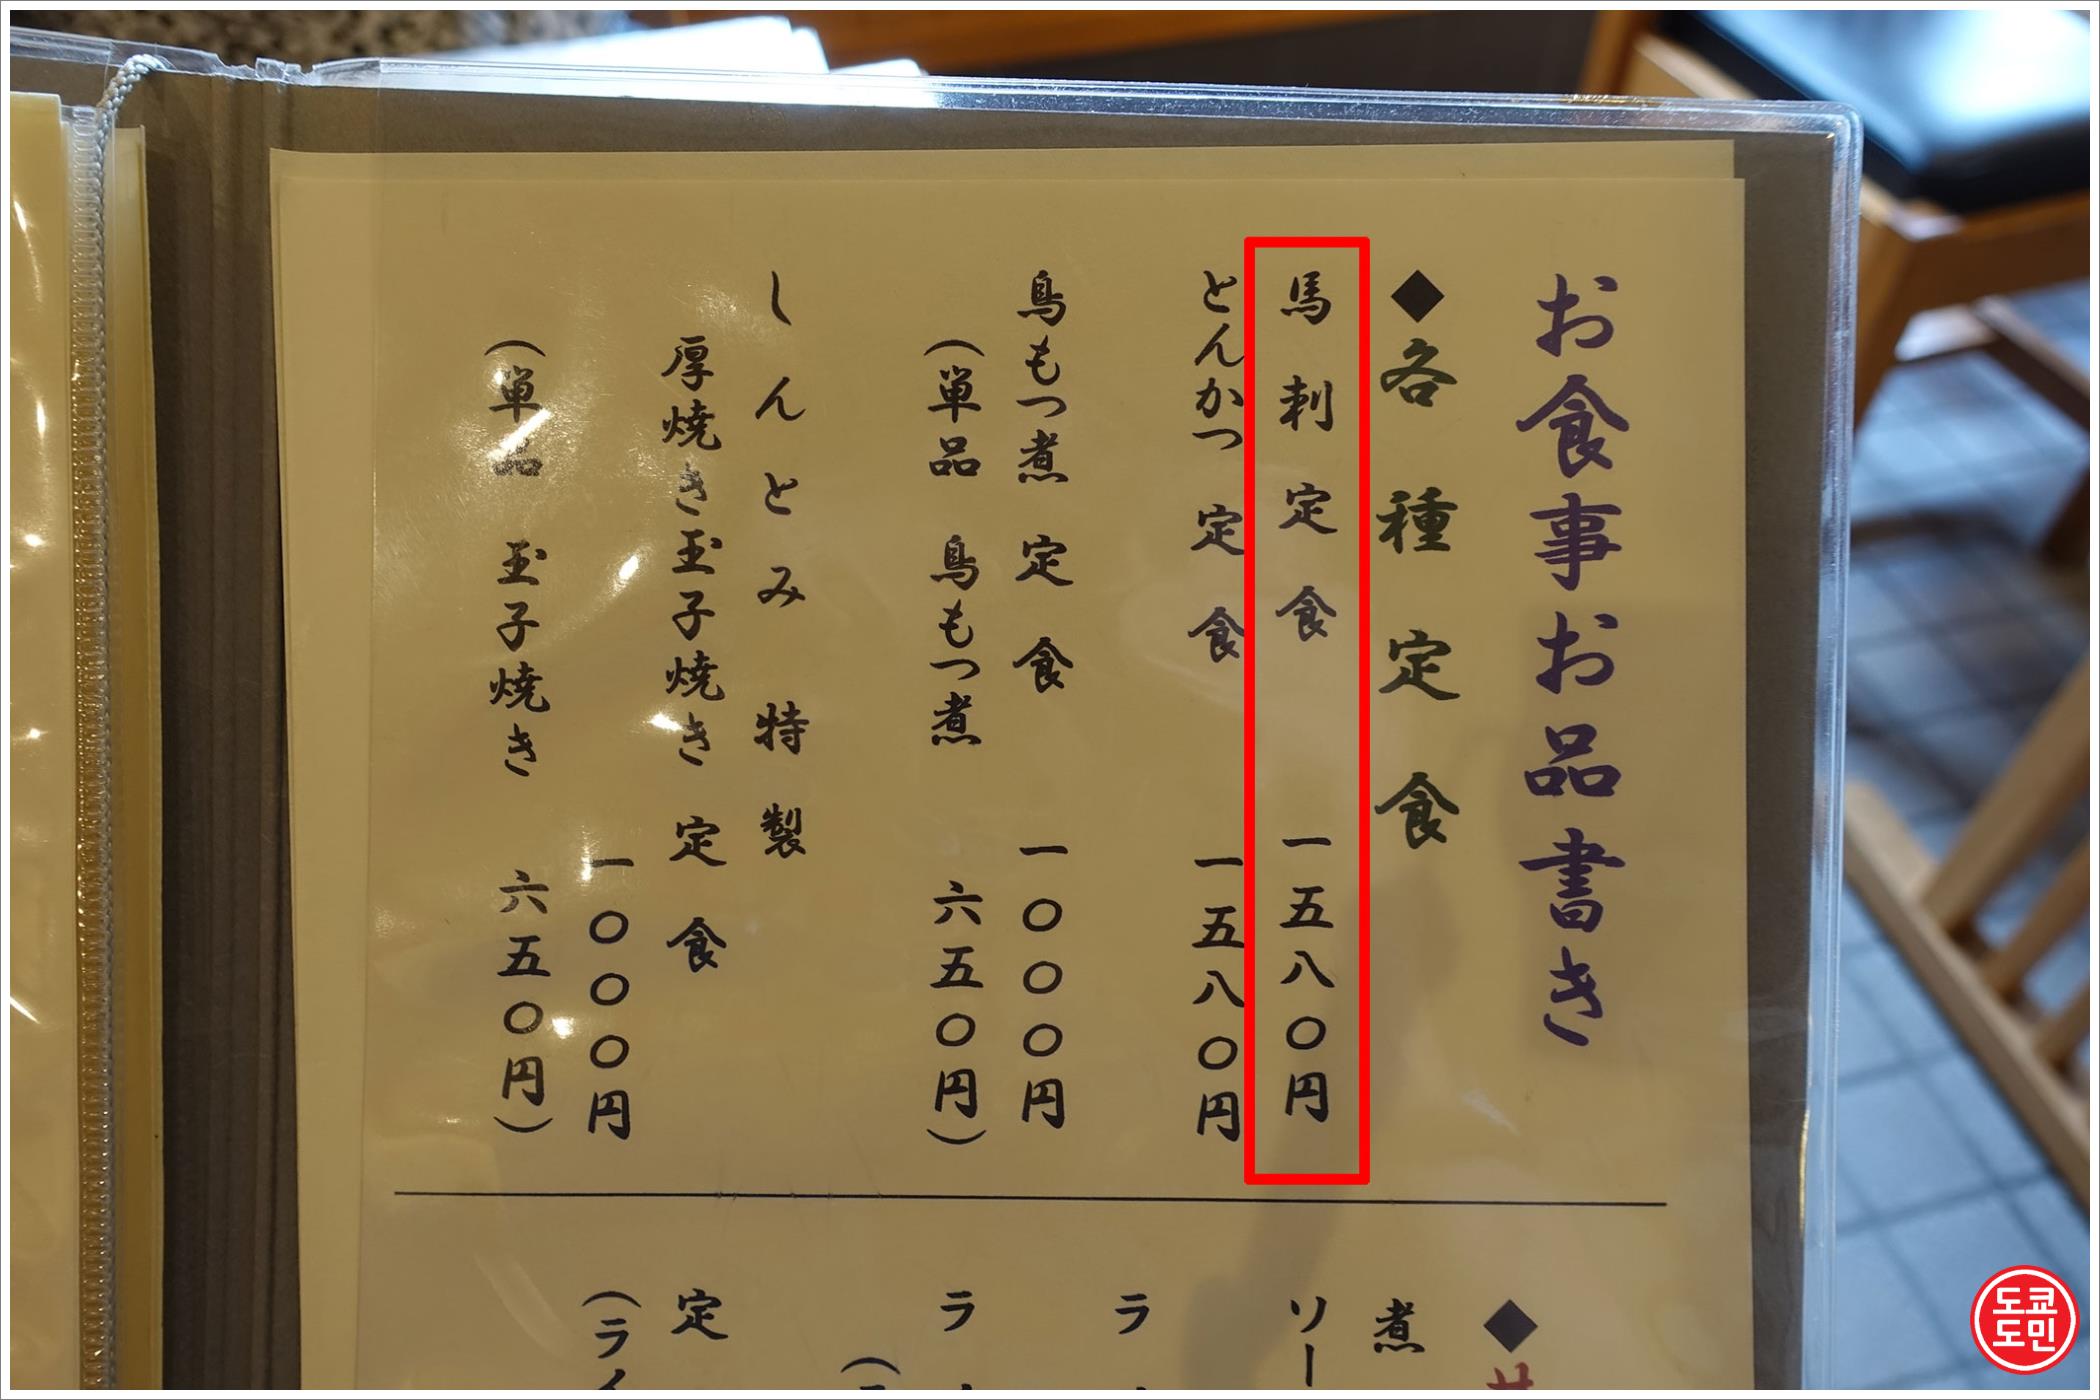 お食事お品書き
◆各種定食
馬刺定食 一五八〇円
とんかつ定食 一五八〇円
鳥もつ煮定食 一〇〇〇円
(単品 鳥もつ煮 六五〇円)
しんとみ特製
厚焼き玉子焼き定食
一〇〇〇円
(単品 玉子焼き 六五〇円)
◆
煮
ソー
ラ
ラ
定
(ライ
도쿄
도민